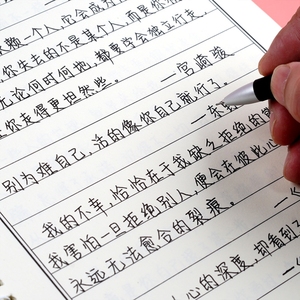 赖一个人,它会成
你失去的不是某个人,而是你
无论何时何地,都要学会独立行走,
你走得更坦然些。
——宫崎骏
别为难自己,活的像你自己就行了。
我的不幸,恰恰在于我缺乏拒绝的
我害怕一旦拒绝别人,便会在彼此心
永远无法愈合的裂痕。
心的深度,却看到了